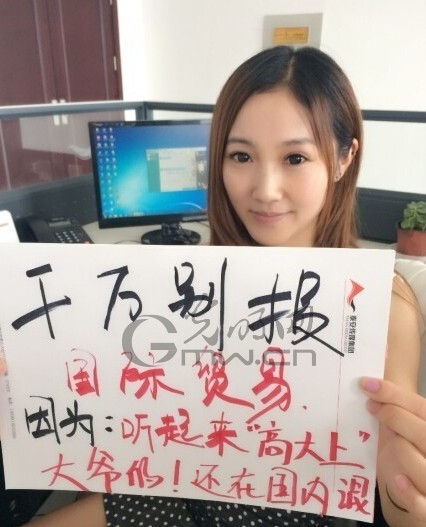 千万别报
泰安传媒集团
光明网
Gmw.cn
国际贸易.
因为：听起来“高大上”
大爷们！还在国内混